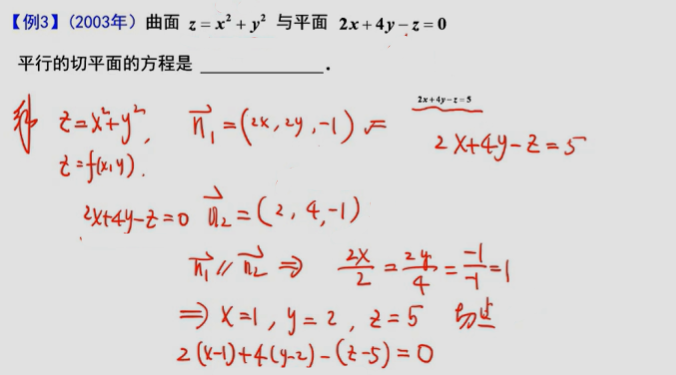 【例3】(2003年) 曲面 z = x² + y² 与平面 2x + 4y − z = 0
平行的切平面的方程是 ____________.
2x+4y−z=5
解 z=x²+y², n₁⃗=(2x,2y,-1)
2x+4y-z=5
z=f(x,y).
2x+4y-z=0 n₂⃗=(2,4,-1)
n₁⃗ // n₂⃗ ⇒ 2x/2 = 2y/4 = -1/-1 = 1
⇒ x=1, y=2, z=5 切点
2(x-1)+4(y-2)-(z-5)=0